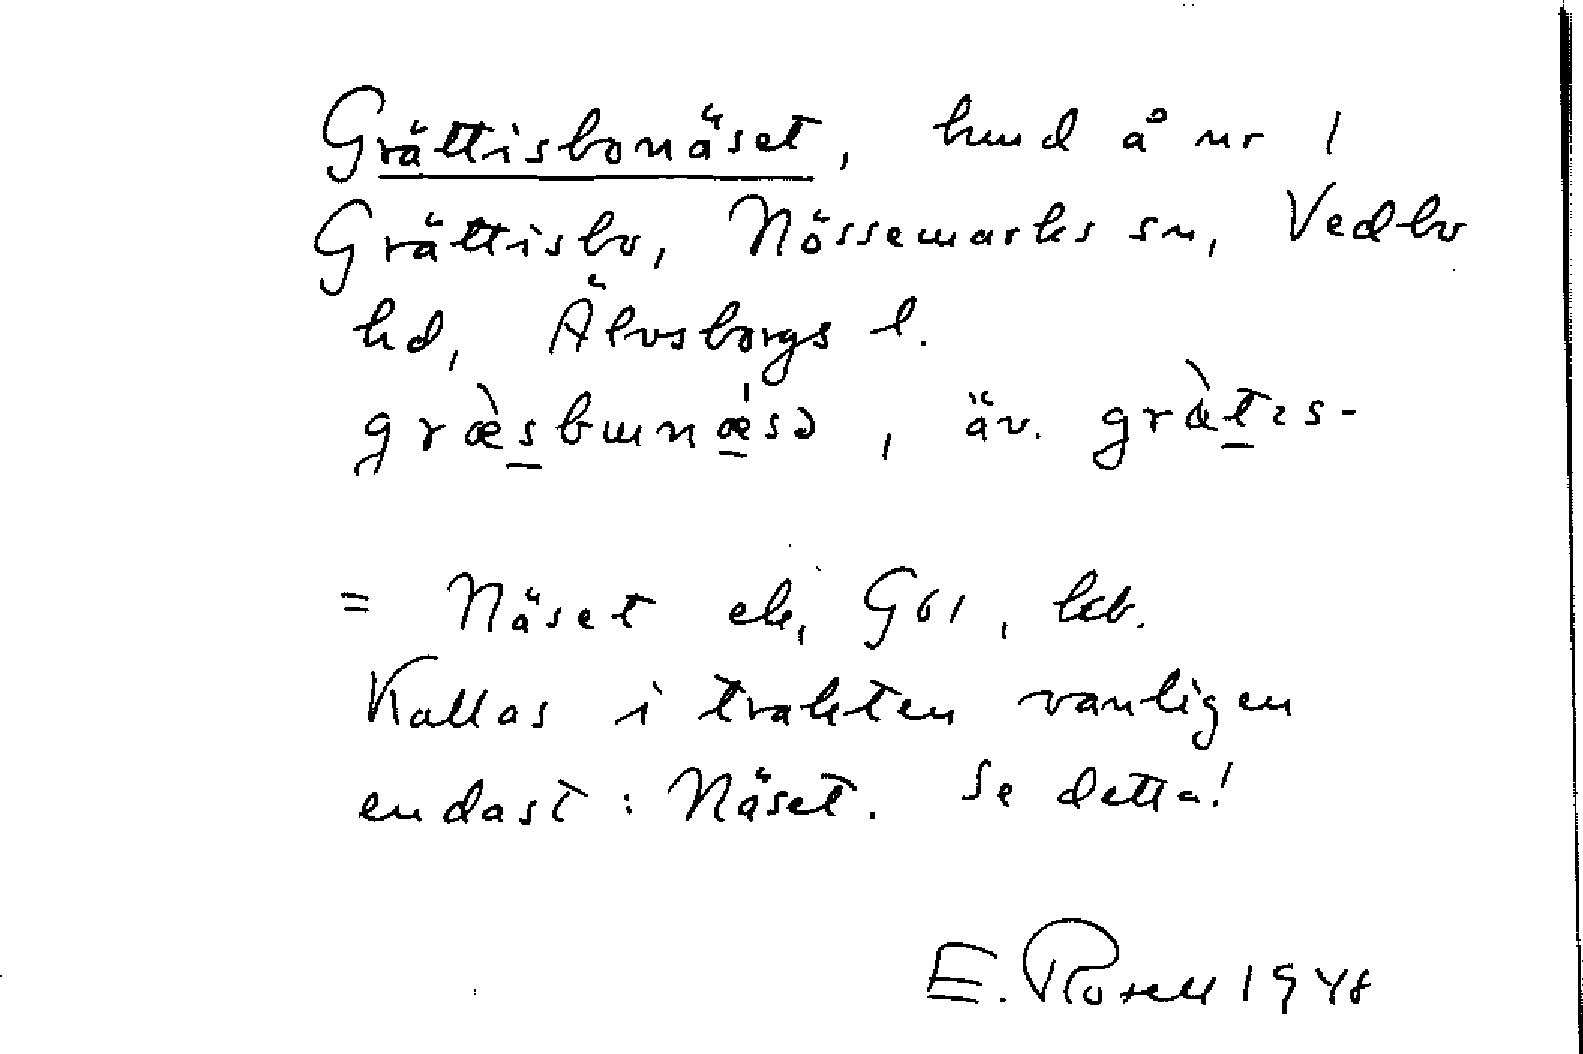 Grättisbonäset, hmd å nr 1
Grättisbo, Nössemarks sn, Vedbo
hd, Älvsborgs l.
græ̀sbɯnǽsə, äv. græ̀tɪs-
= Näset ek, G61, lcb.
Kallas i trakten vanligen
endast: Näset. Se detta!
E. Rosell 1948